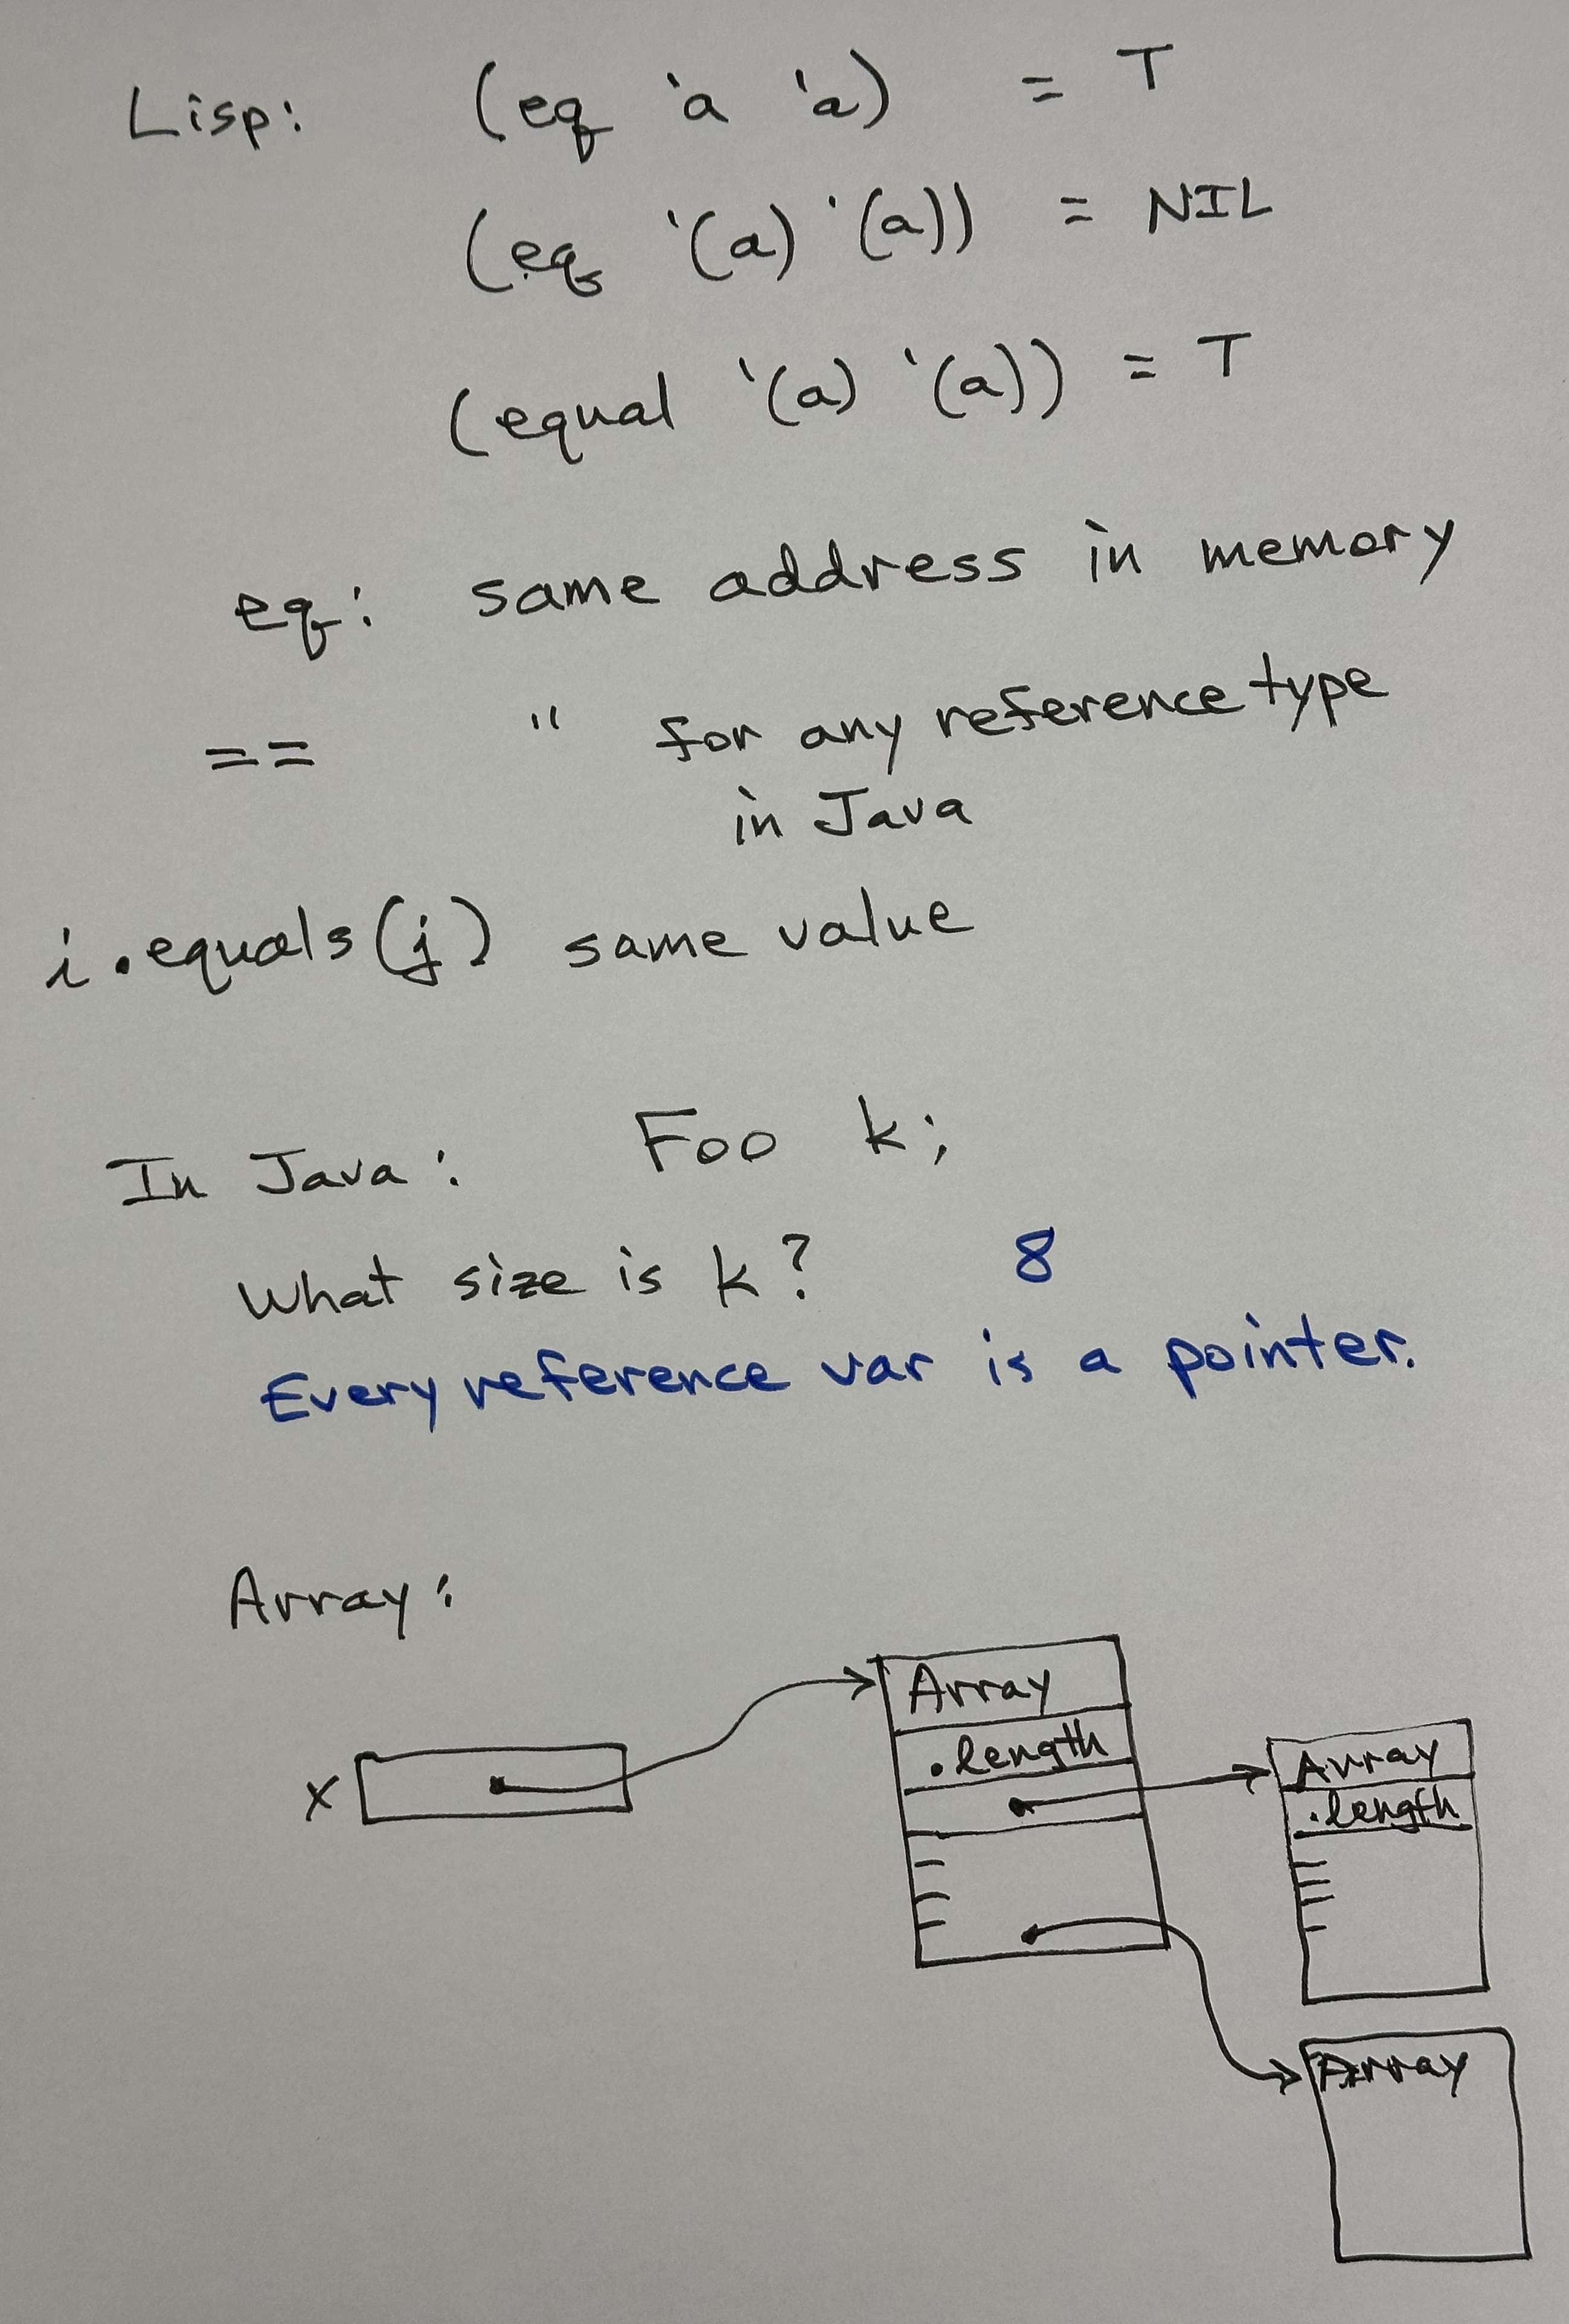 Lisp: (eq 'a 'a) = T
(eq '(a) '(a)) = NIL
(equal '(a) '(a)) = T
eq: same address in memory
== " for any reference type
in Java
i.equals(j) same value
In Java: Foo k;
What size is k? 8
Every reference var is a pointer.
Array:
Array
.length
x
Array
.length
Array